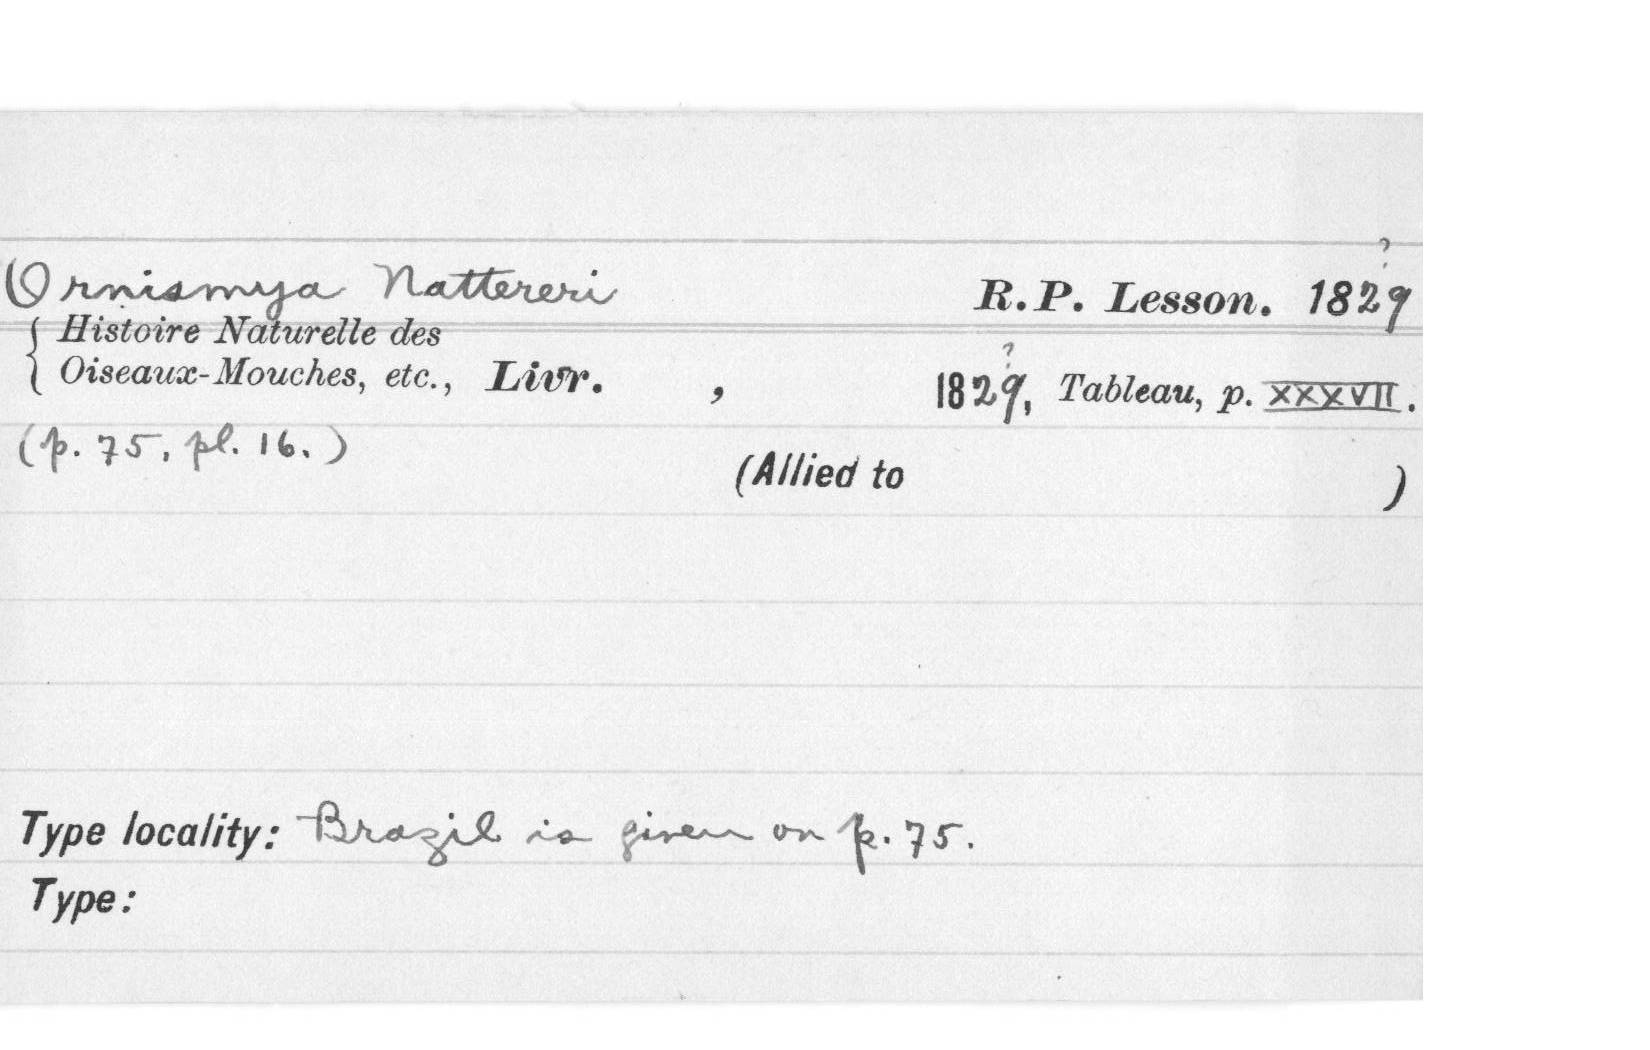 ?
Ornismya Nattereri R.P. Lesson. 1829
{ Histoire Naturelle des
Oiseaux-Mouches, etc., Livr. , 1829?, Tableau, p. XXXVII.
(p. 75, pl. 16.)
(Allied to )
Type locality: Brazil is given on p. 75.
Type: